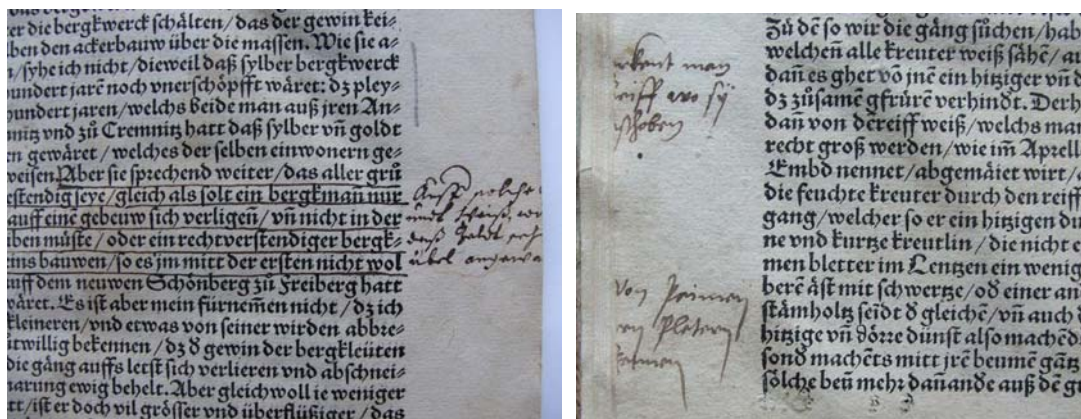 er die bergkwerck schälten/das der gewin kei⸗
ben den ackerbauw über die massen. Wie sie a⸗
n/syhe ich nicht/dieweil daß sylber bergkwerck
hundert jarē noch vnerschöpfft wäret: dz pley⸗
hundert jaren/welchs beide man auß jren An⸗
nitz vnd zů Cremnitz hatt daß sylber vñ goldt
en gewäret/welches der selben einwonern ge⸗
weisen. Aber sie sprechend weiter/das aller grů
estendig seye/gleich als solt ein bergkmañ nur
auff einē gebeuw sich verligeñ/vñ nicht in der
ben müste/oder ein rechtverstendiger bergk⸗
ins bauwen/so es jm mitt der ersten nicht wol
uff dem neuwen Schönberg zů Freiberg hatt
wäret. Es ist aber mein fürnemmen nicht/dz ich
kleineren/vnd etwas von seiner wirden abbre⸗
ůtwillig bekennen/dz ð gewin der bergkleüten
die gäng auffs letst sich verlieren vnd abschnei⸗
narung ewig behelt. Aber gleichwoll ie weniger
tt/ist er doch vil grösser vnd überflüßiger/das
übel
Zů dē so wir die gäng sůchen/hab
welcheñ alle kreuter weiß sähē/au
dañ es ghet vō jnē ein hitziger vñ d
dz zůsamē gfrürē verhindt. Derh
dañ von dē reiff weiß/welchs mar
recht groß werden/wie im̃ Aprell
Embd nennet/abgemäiet wirt/
die feuchte kreuter durch den reiff
gang/welcher so er ein hitzigen du
ne vnd kurtze kreutlin/die nicht e
men bletter im Lentzen ein wenig
berē äst mit schwertze/oð einer an
stämholtz seidt ð gleichē/vñ auch
hitzige vñ dörre dünst also machēd
sond machēts mitt jrē beumē gätz
sölche beü mehr dañ andē auß dē g
man
reiff wo sÿ
Von